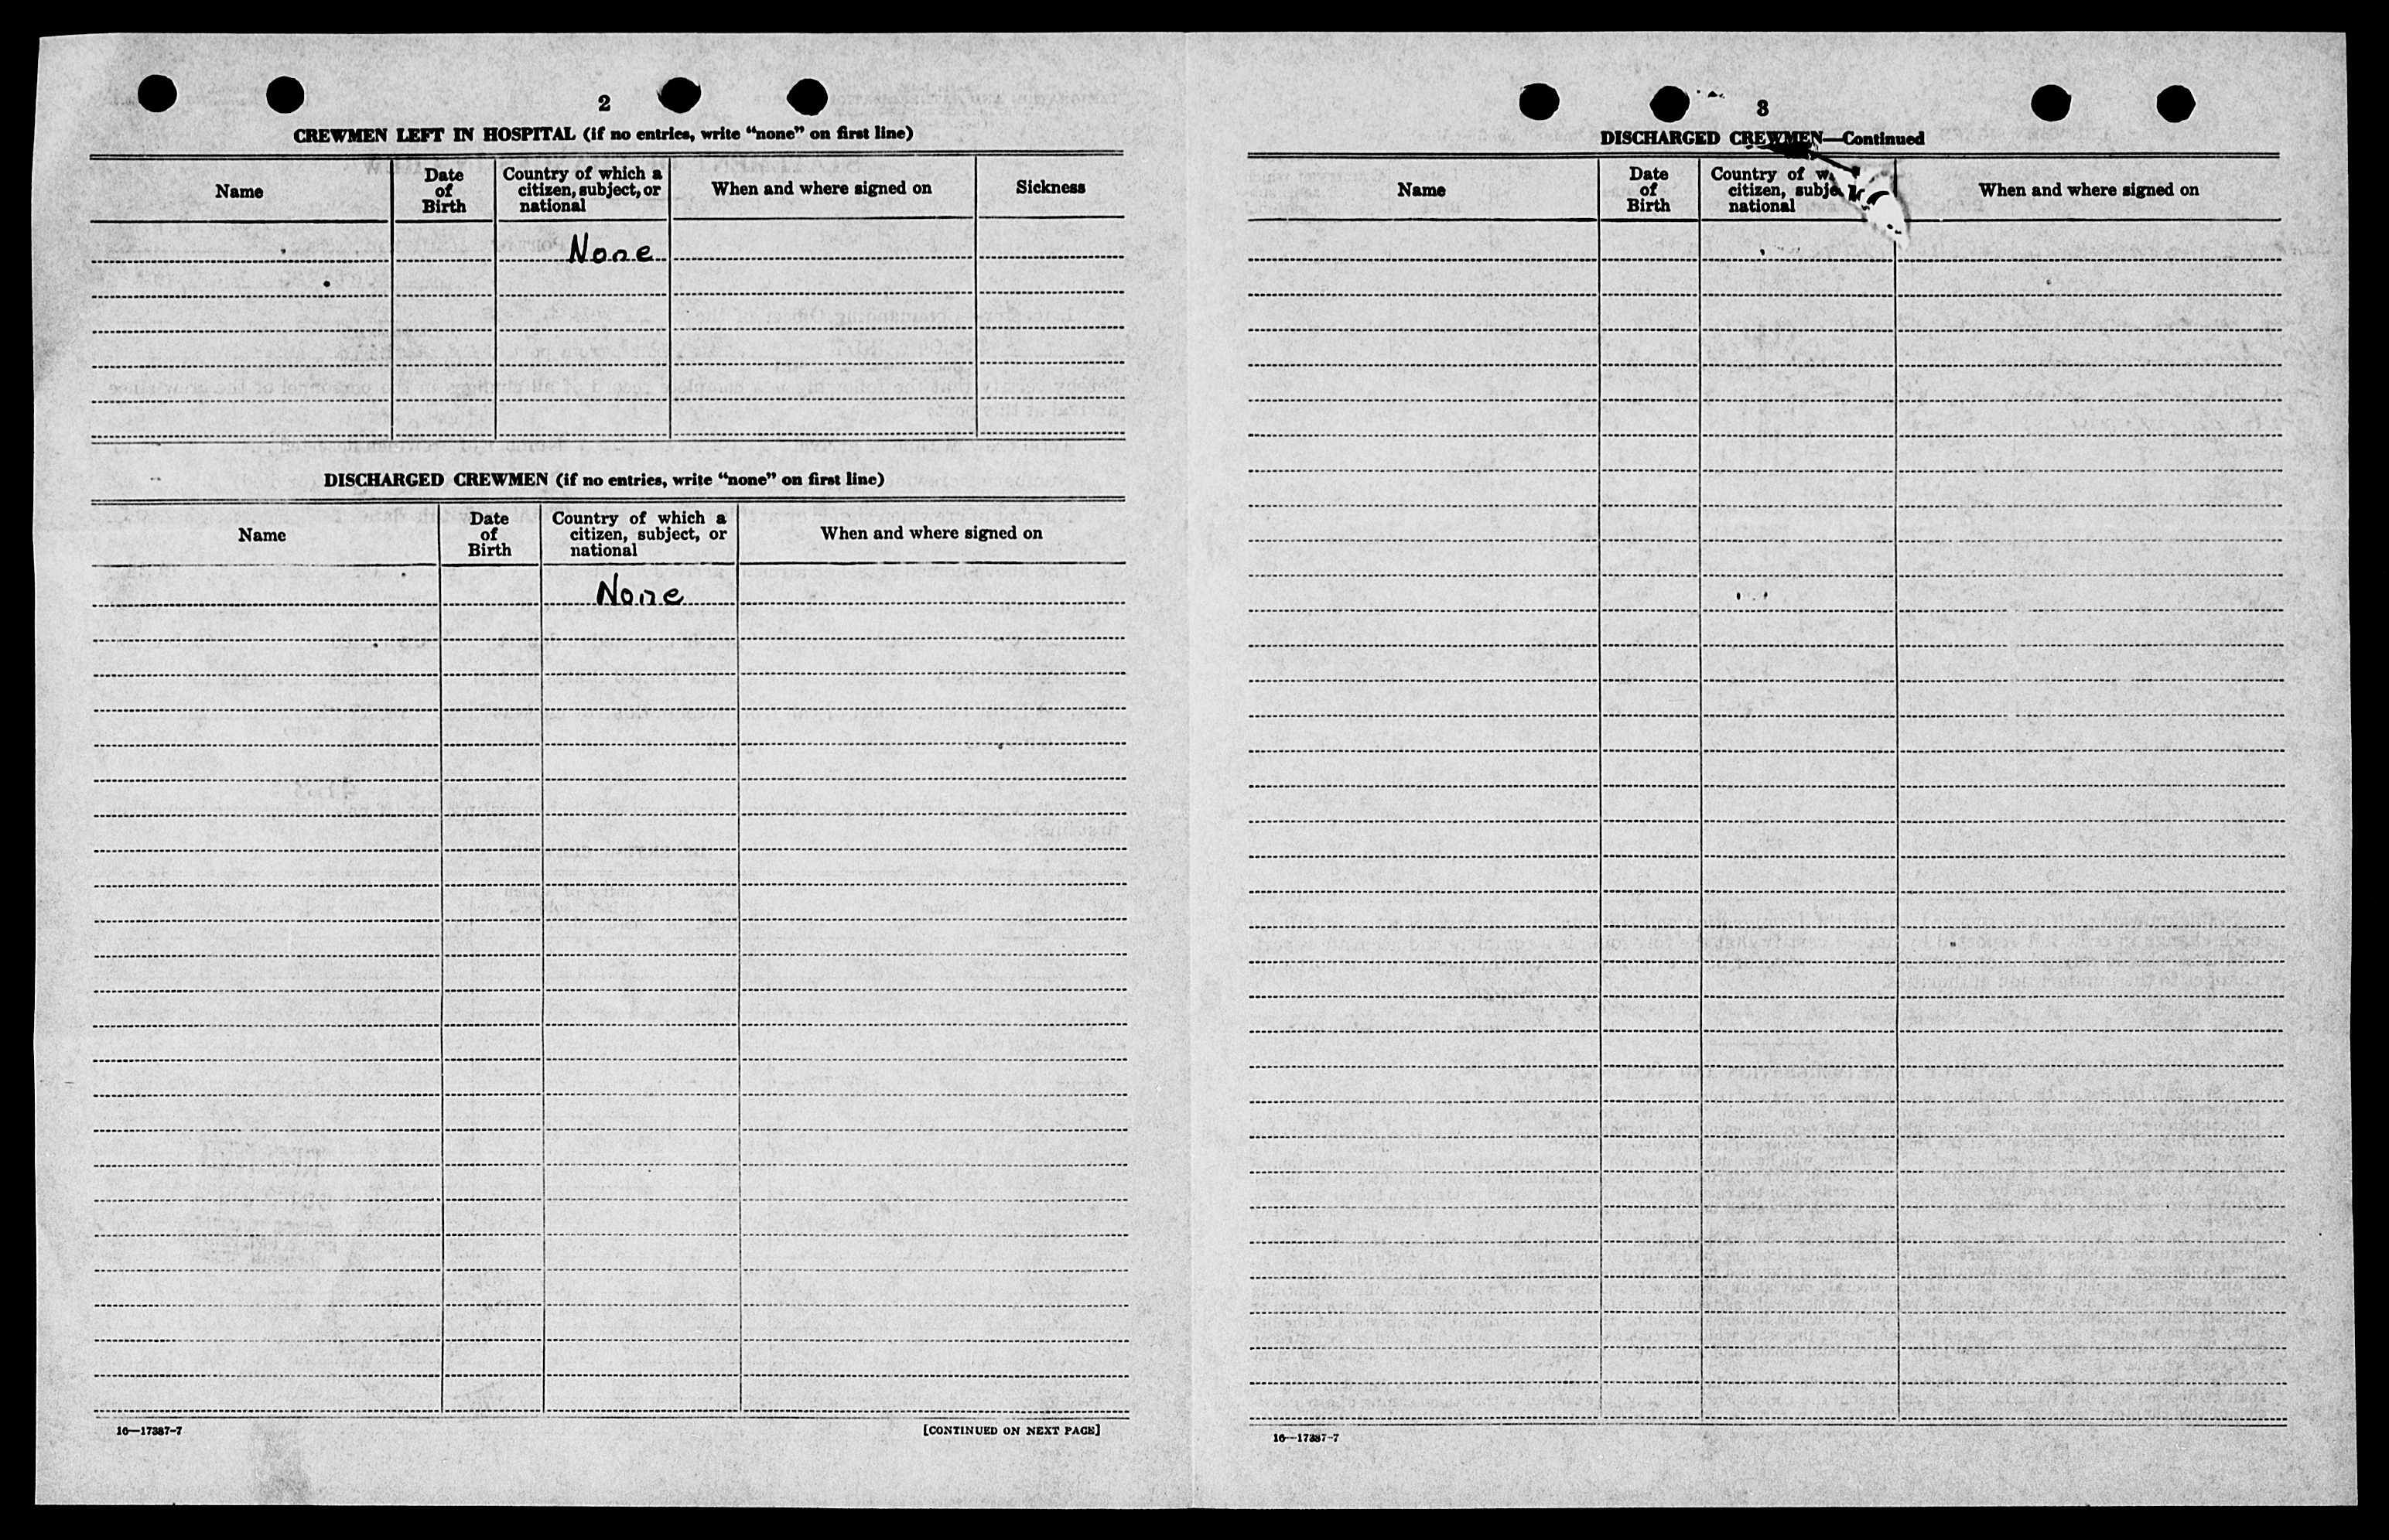 2
CREWMEN LEFT IN HOSPITAL (if no entries, write "none" on first line)
Name
Date
of
Birth
Country of which a
citizen, subject, or
national
When and where signed on
Sickness
None
DISCHARGED CREWMEN (if no entries, write "none" on first line)
Name
Date
of
Birth
Country of which a
citizen, subject, or
national
When and where signed on
None
16—17387-7
[CONTINUED ON NEXT PAGE]
3
DISCHARGED CREWMEN—Continued
Name
Date
of
Birth
Country of
citizen,
national
When and where signed on
16—17387-7